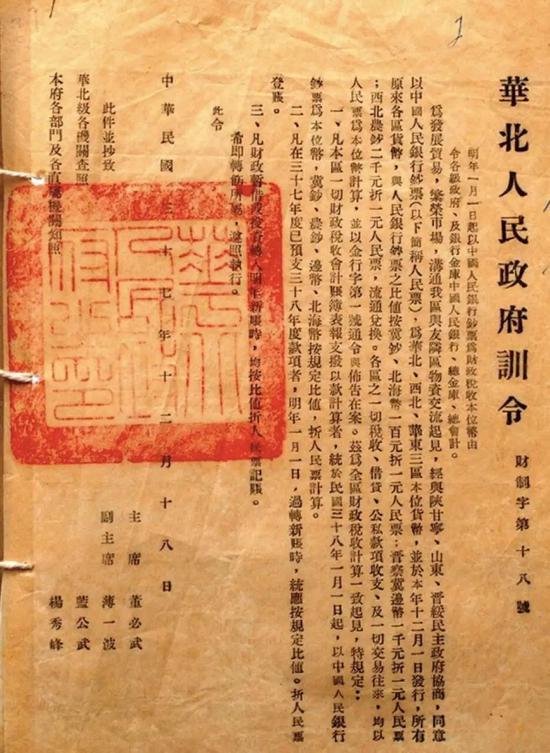 華北人民政府訓令
財制字第十八號
明年一月一日起以中國人民銀行鈔票爲財政稅收本位幣由
令各級政府、及銀行金庫中國人民銀行、總金庫、總會計。
爲發展貿易，繁榮市場，溝通我區與友隣區物資交流起見，經與陝甘寧、山東、晉綏民主政府協商，同意
以中國人民銀行鈔票（以下簡稱人民票），爲華北、西北、華東三區本位貨幣，並於本年十二月一日發行，所有
原來各區貨幣，與人民銀行鈔票之比值按冀鈔、北海幣一百元折一元人民票；晉察冀邊幣一千元折一元人民票
；西北農鈔二千元折一元人民票，流通兌換。各區之一切稅收、借貸、公私款項收支、及一切交易往來，均以
人民票爲本位幣計算，並以金行字第一號通令與佈告在案。茲爲全區財政稅收計算一致起見，特規定：
一、凡本區一切財政稅收會計賬簿表報支撥以款計算者，統於民國三十八年一月一日起，以中國人民銀行
鈔票爲本位幣，冀鈔、農鈔、邊幣、北海幣按規定比值，折人民票計算。
二、凡在三十七年度已預支三十八年度款項者，明年一月一日，過轉新賬時，統應按規定比值。折人民票
登賬。
三、凡財政暫借或投資轉入明年新賬時，均按比值折人民票記賬。
希即轉飭所屬，遵照執行。
此令
中華民國三十七年十二月十八日
主席 董必武
副主席 薄一波
藍公武
楊秀峰
此件並抄致
華北級各機關查照
本府各部門及各直屬機關知照
1